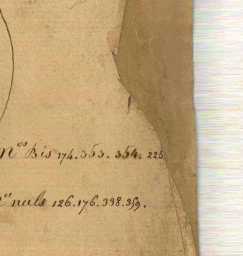 Nos Bis 174. 353. 354. 225
Nos nuls 126. 176. 338. 359.